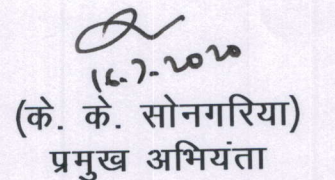 16.7.2020
(के. के. सोनगरिया)
प्रमुख अभियंता